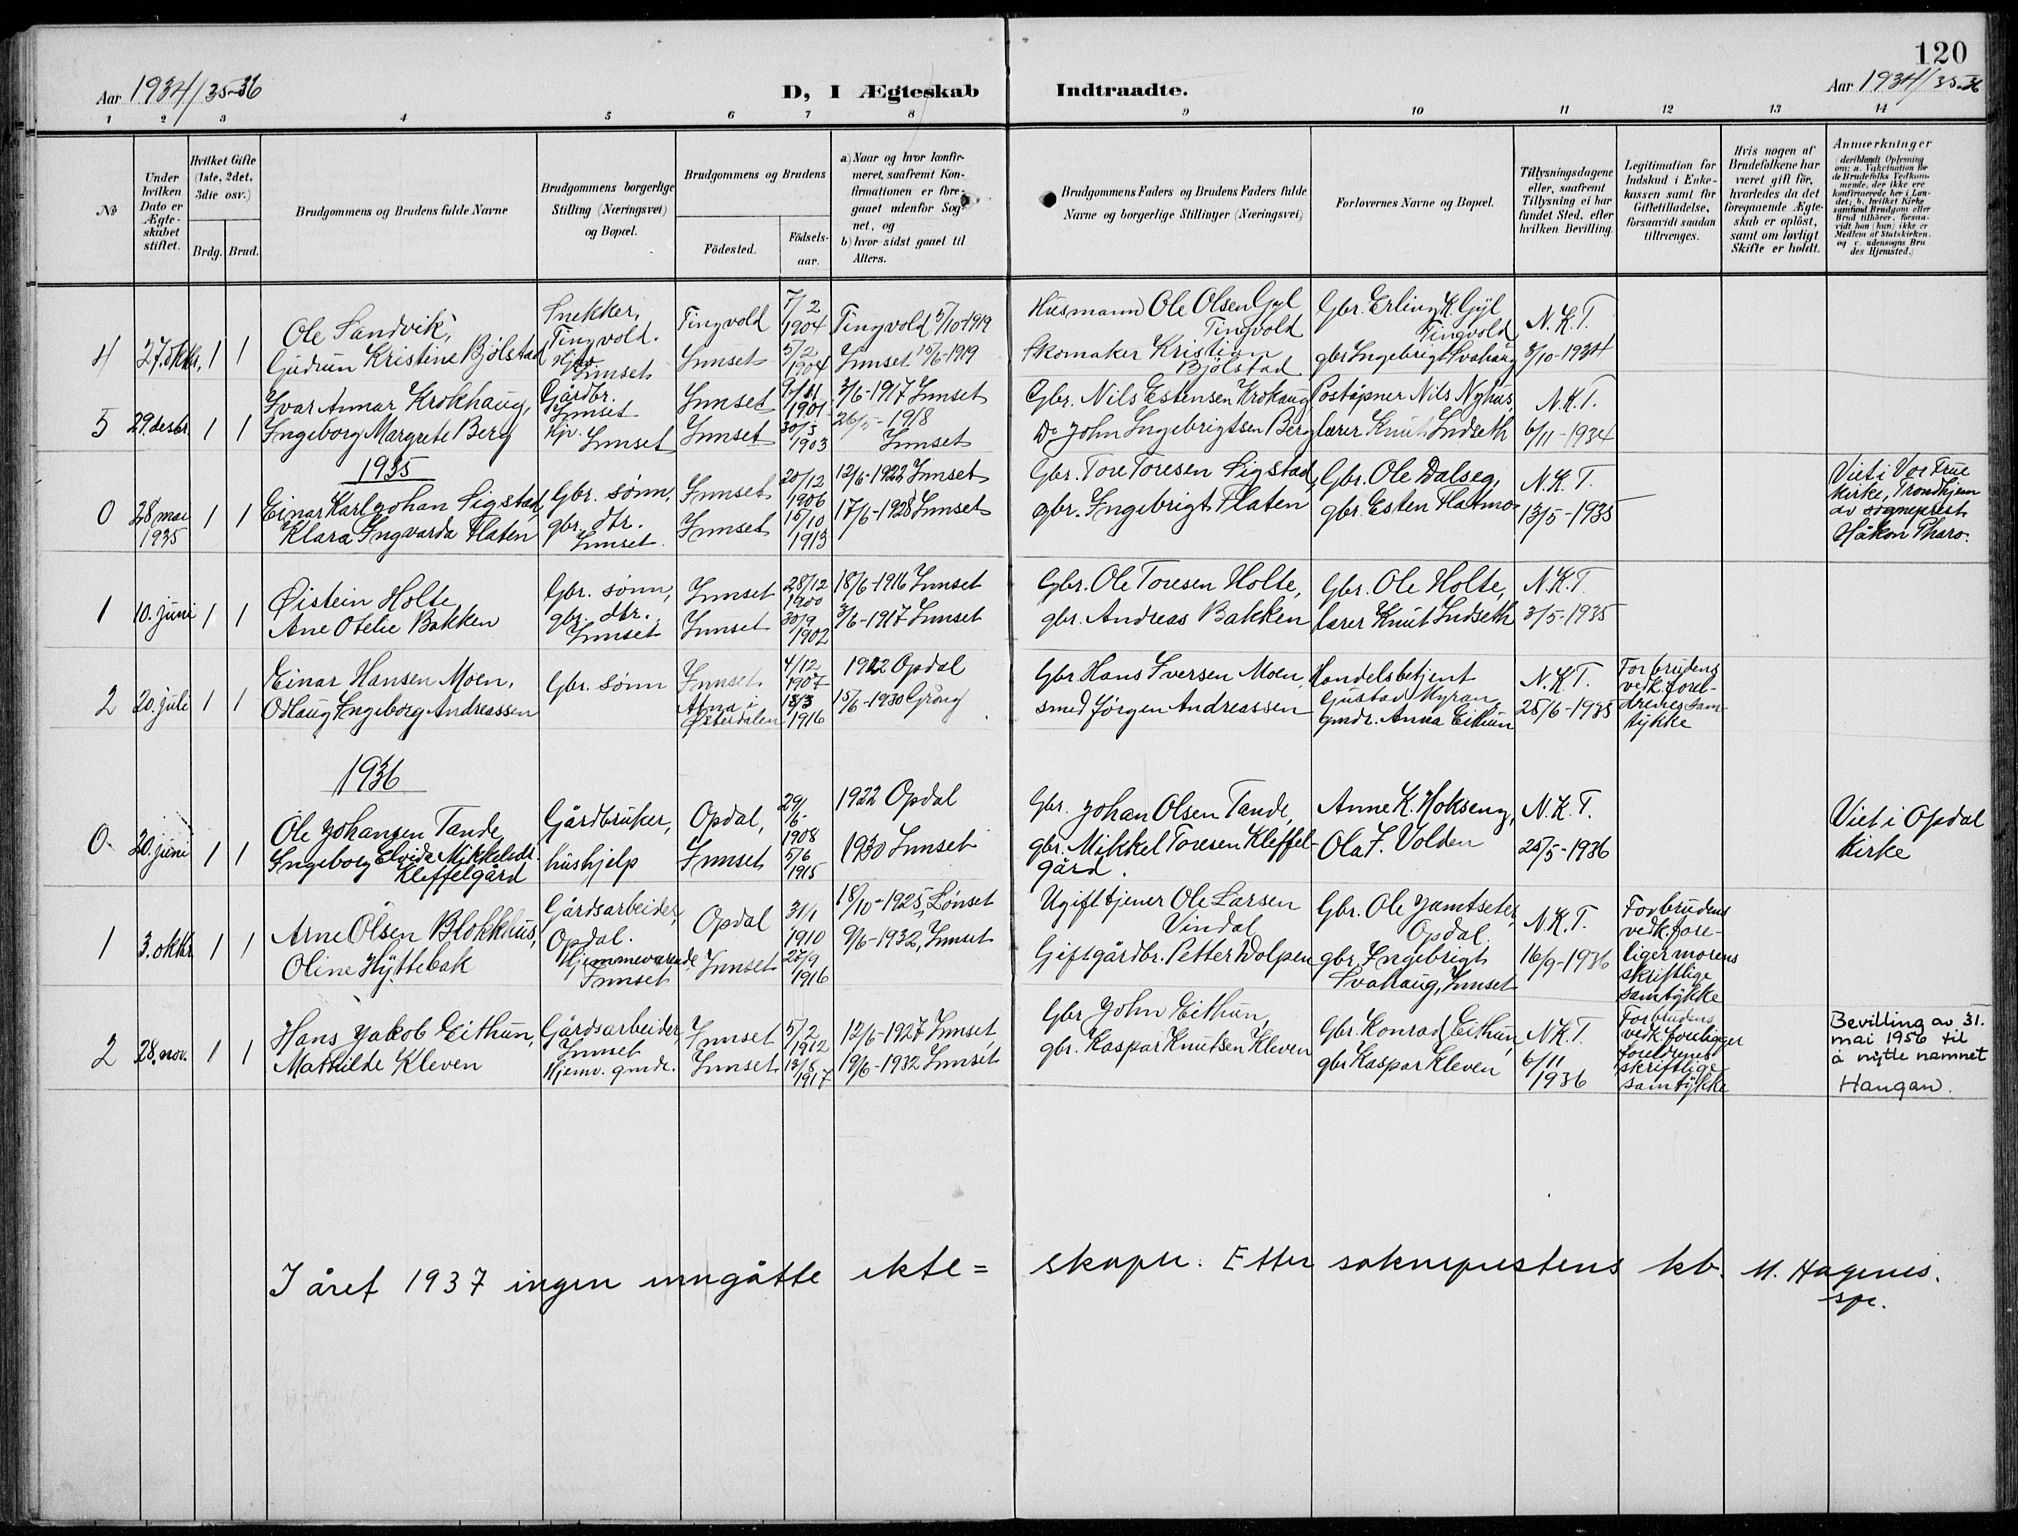 120
Aar 1934/35-36
D, I Ægteskab Indtraadte.
Aar 1934/35-36
1 2 3 4 5 6 7 8 9 10 11 12 13 14
No
Under hvilken Dato er Ægteskabet stiftet.
Hvilket Gifte (1ste, 2det, 3die osv.)
Brdg. Brud.
Brudgommens og Brudens fulde Navne
Brudgommens borgerlige Stilling (Næringsvei) og Bopæl.
Brudgommens og Brudens
Födested.
Födselsaar.
a) Naar og hvor konfirmeret, saafremt Konfirmationen er foregaaet udenfor Sognet, og
b) hvor sidst gaaet til Alters.
Brudgommens Faders og Brudens Faders fulde Navne og borgerlige Stillinger (Næringsvei)
Forlovernes Navne og Bopæl.
Tillysningsdagene eller, saafremt Tillysning ei har fundet Sted, efter hvilken Bevilling.
Legitimation for Indskud i Enkekassen samt for Giftetilladelse, forsaavidt saadan tiltrænges.
Hvis nogen af Brudefolkene har været gift för, hvorledes da det foregaaende Ægteskab er oplöst, samt om lovligt Skifte er holdt.
Anmærkninger (deriblandt Oplysning om: a. Vakcination for de Brudefolks Vedkommende, der ikke ere konfirmerede her i Landet; b. hvilket Kirkesamfund Brudgom eller Brud tilhörer, forsaavidt han (hun) ikke er Medlem af Statskirken, og c. udensogns Brudes Hjemsted.)
4 27. oktbr. 1 1
Ole Sandvik,
Gudrun Kristine Bjølstad
Snekker,
Tingvold.
Hjv.
Innset
Tingvold
Innset
7/2 1904
5/2 1904
Tingvold 5/10-1919
Innset 15/6-1919
Husmann Ole Olsen Gyl
Tingvold
Skomaker Kristian
Bjølstad
Gbr. Erling K. Gyl
Tingvold
gbr Ingebrigt Svahaug
N.K.T.
3/10-1934
5 29. desbr. 1 1
Ivar Annar Krokhaug,
Ingeborg Margrete Berg
Gårdbr.
Innset
Hjv. Innset
Innset
Innset
9/11 1901
30/3 1903
3/6-1917 Innset
26/5-1918
Innset
Gbr. Nils Estensen Krokaug
Do John Ingebrigtsen Berg
Poståpner Nils Nyhus,
lærer Knut Indseth
N.K.T.
6/11-1934
1935
0 28. mai 1935 1 1
Einar Karl Johan Sigstad,
Klara Ingvarda Flaten
Gbr. sønn,
gbr. dtr.
Innset
Innset
Innset
20/12 1906
15/10 1913
12/6-1922 Innset
17/6-1928 Innset
Gbr. Tore Toresen Sigstad,
gbr. Ingebrigt Flaten
Gbr. Ole Dalseg,
gbr. Esten Flatmo
N.K.T.
13/5-1935
Viet i Vor Frue
kirke, Trondhjem
av sogneprest
Håkon Pharo.
1 10. juni 1 1
Øistein Holte
Ane Otelie Bakken
Gbr. sønn,
gbr. dtr.
Innset
Innset
Innset
28/12 1900
30/9 1902
18/6-1916 Innset
3/6-1917 Innset
Gbr. Ole Toresen Holte,
gbr. Andreas Bakken
Gbr. Ole Holte,
lærer Knut Indseth
N.K.T.
3/5-1935
2 20. juli 1 1
Einar Hansen Moen,
Odlaug Ingeborg Andreassen
Gbr. sønn
Innset.
Atna i
Østerdalen
4/12 1907
18/3 1916
1922 Opdal
15/6-1930 Grong
Gbr Hans Iversen Moen,
smed Jørgen Andreassen
Handelsbetjent
Gustav Myran,
gmdr. Anna Eithun
N.K.T.
25/6-1935
For brudens
vedk. forel-
drenes sam-
tykke
1936
0 20. juni 1 1
Ole Johansen Tande
Ingeborg Elvida Mikkelsdt.
Kleffelgård
Gårdbruker,
hushjelp
Opdal,
Innset
29/6-1908
5/6 1915
1922 Opdal
1930 Innset
Gbr. Johan Olsen Tande,
gbr. Mikkel Toresen Kleffel-
gård.
Anne K. Hokseng,
Ola F. Volden
N.K.T.
25/5-1936
Viet i Opdal
kirke
1 3. oktbr. 1 1
Arne Olsen Blokkhus,
Oline Hyttebak
Gårdsarbeider,
Opdal.
Hjemmeværende
Innset
Opdal
Innset
31/1 1910
25/9 1916
18/10-1925, Lønset
9/6-1932, Innset
Ugift tjener Ole Larsen
Vindal
Gift gårdbr. Petter Dolpen
Gbr. Ole Jamtseter,
Opdal
gbr. Ingebrigt
Svahaug, Innset
N.K.T.
16/9-1936
For brudens
vedk. fore-
liger morens
skriftlige
samtykke
2 28. nov. 1 1
Hans Jakob Eithun,
Mathilde Kleven
Gårdsarbeider,
Innset
Hjemv. gmdr.
Innset
Innset
5/2 1912
13/8 1917
12/6-1927 Innset
19/6-1932 Innset
Gbr John Eithun,
gbr. Kaspar Knutsen Kleven
Gbr. Konrad Eithun,
gbr Kaspar Kleven
N.K.T.
6/11 1936
For brudens
vedk. foreligger
foreldrenes
skriftlige
samtykke
Bevilling av 31.
mai 1956 til
å nytte namnet
Haugan.
I året 1937 ingen inngåtte ekte= skaper. Etter sokneprestens kb. M. Hagenes.
spr.